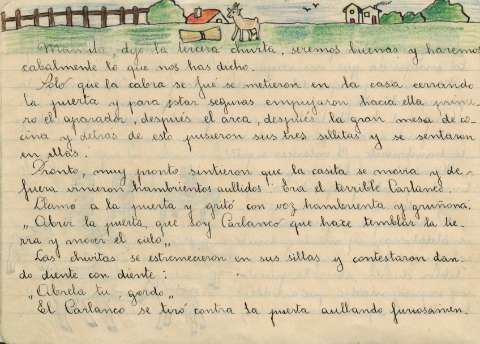 Mamita, dijo la tercera chivita, seremos buenas y haremos
cabalmente lo que nos has dicho.
Sólo que la cabra se fué se metieron en la casa cerrando
la puerta y para estar seguras empujaron hacia ella prime-
ro el aparador, después el arca, después la gran mesa de co-
cina y detras de esto pusieron sus tres sillitas y se sentaron
en ellas.
Pronto, muy pronto sintieron que la casita se movia y de
fuera vinieron hambrientos aullidos! Era el terrible Carlanco.
Llamó a la puerta y gritó con voz hambrienta y gruñona.
„Abrir la puerta, que soy Carlanco que hace temblar la tie-
rra y mover el cielo„
Las chivitas se estremecieron en sus sillas y contestaron dan-
do diente con diente:
„Abrela tu, gordo„
El Carlanco se tiró contra la puerta aullando furiosamen-